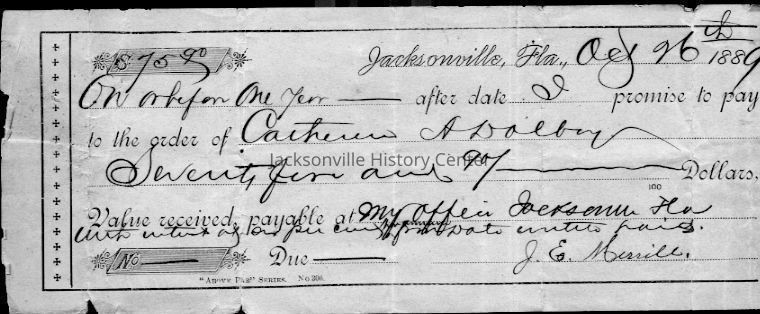 $ 75 90 Jacksonville, Fla., Oct 26th 1889
On or before One Year after date I promise to pay
to the order of Catherine A Dolboy
Jacksonville History Center
Seventy five and 90/100 Dollars,
Value received, payable at My Office Jacksonville Fla
with interest at per cent from date until paid.
No Due J. E. Merrill.
"Above Par" Series. No 306.